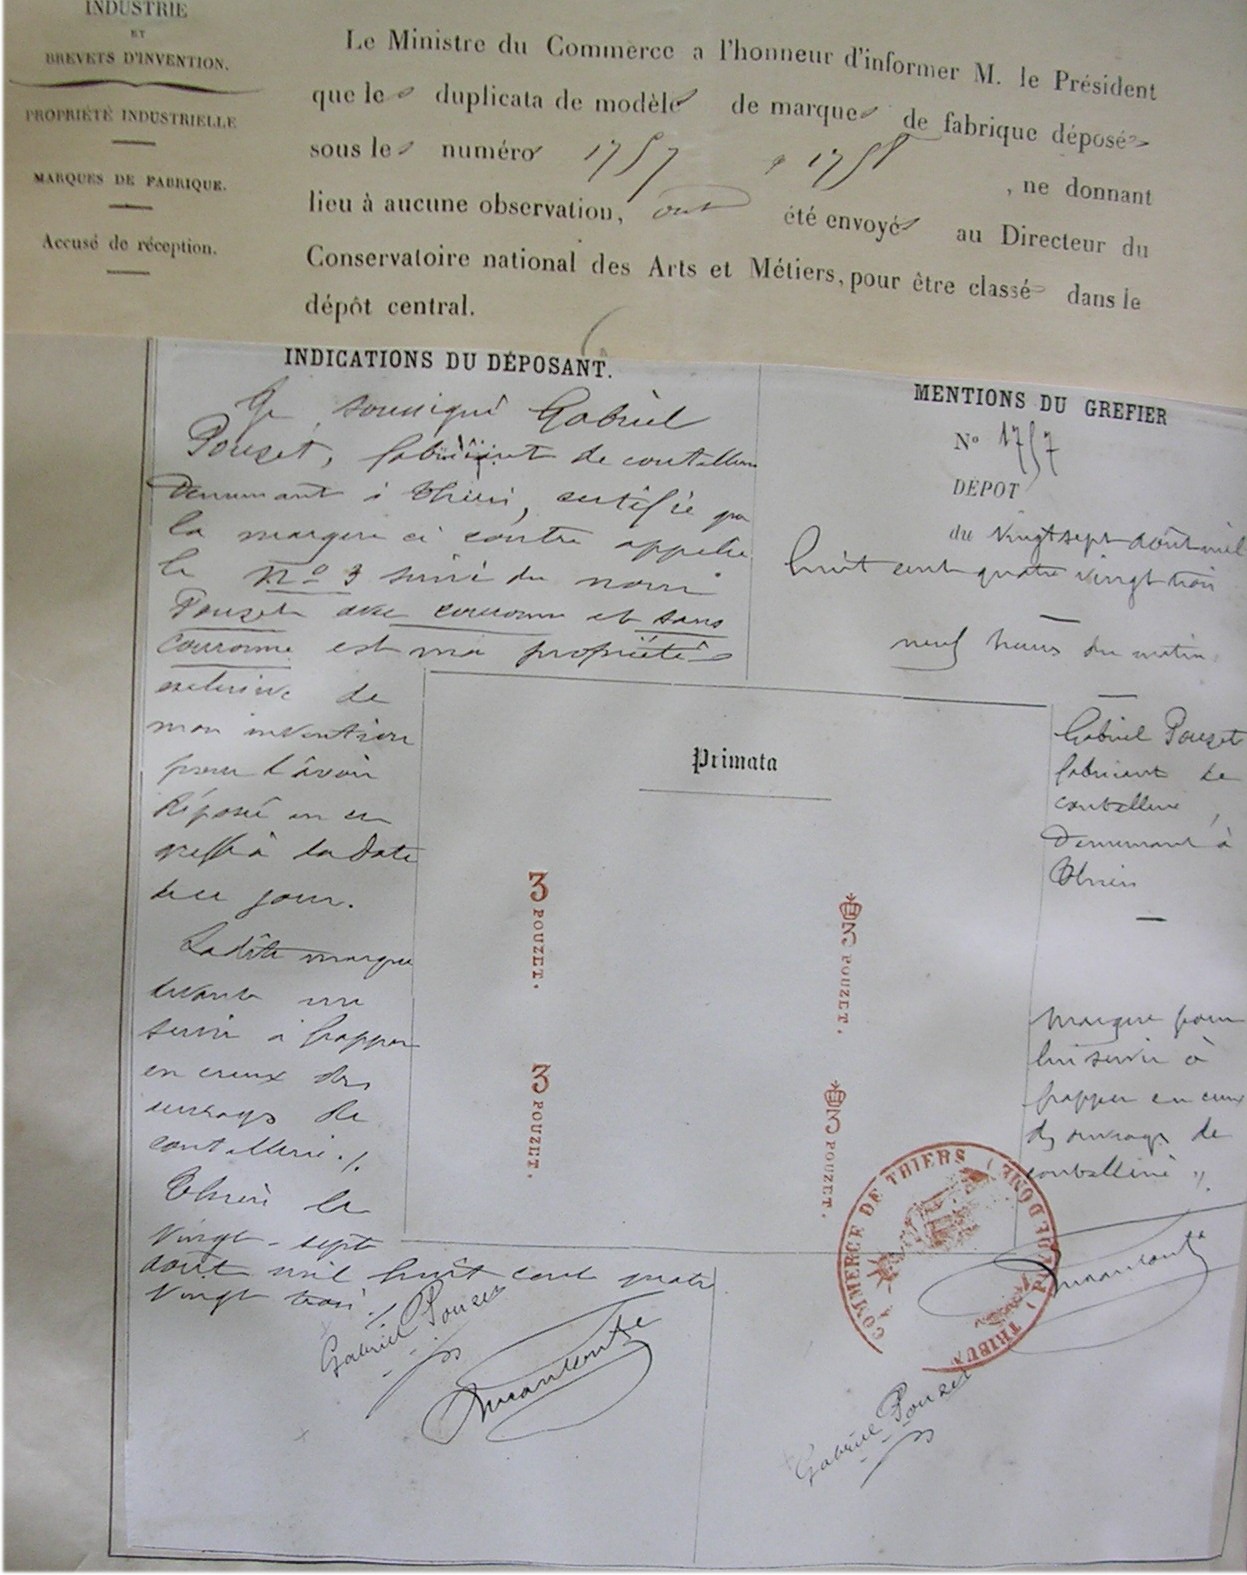 INDUSTRIE
ET
BREVETS D'INVENTION.
PROPRIÉTÉ INDUSTRIELLE
MARQUES DE FABRIQUE.
Accusé de réception.
Le Ministre du Commerce a l'honneur d'informer M. le Président
que les duplicata de modèle de marques de fabrique déposés
sous les numéros 1757 et 1758, ne donnant
lieu à aucune observation, ont été envoyés au Directeur du
Conservatoire national des Arts et Métiers, pour être classés dans le
dépôt central.
INDICATIONS DU DÉPOSANT.
Je soussigné Gabriel
Pouzet, fabricant de coutellerie
Demeurant à Thiers, certifie que
la marque ci contre appelée
le No 3 suivi du nom
Pouzet avec couronne et sans
couronne est ma propriété
exclusive de
mon invention
pour l'avoir
déposé en ce
greffe à la date
de ce jour.
Ladite marque
devant me
servir à frapper
en creux des
ouvrages de
coutellerie ./.
Thiers le
vingt-sept
août mil huit cent quatre
vingt trois ./.
Gabriel Pouzet
MENTIONS DU GREFIER
No 1757
DÉPOT
du vingt sept août mil
huit cent quatre vingt trois
neuf heures du matin
Gabriel Pouzet
fabricant de
coutellerie,
Demeurant à
Thiers
marque pour
lui servir à
frapper en creux
des ouvrages de
coutellerie
Gabriel Pouzet
Primata
3 POUZET.
3 POUZET.
3 POUZET.
3 POUZET.
TRIBUNAL COMMERCE DE THIERS (PUY DE DOME)